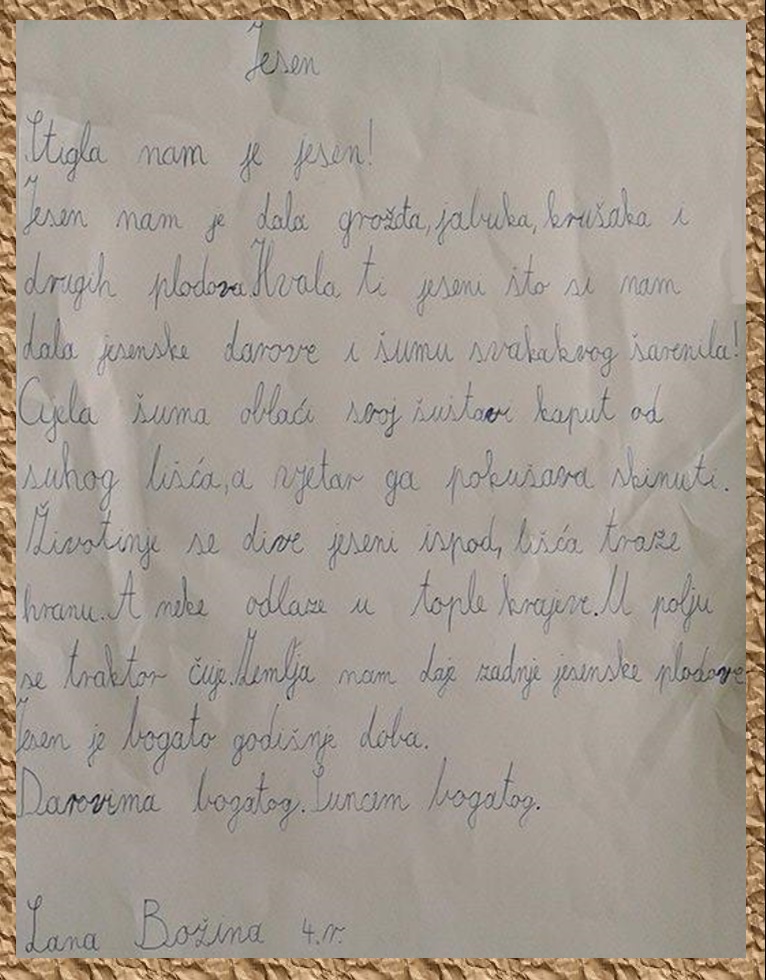 Jesen
Stigla nam je jesen!
Jesen nam je dala grožđa, jabuka, krušaka i
drugih plodova. Hvala ti jeseni što si nam
dala jesenske darove i šumu svakakvog šarenila!
Cijela šuma oblači svoj šuštavi kaput od
suhog lišća, a vjetar ga pokušava skinuti.
Životinje se dive jeseni ispod, lišća traže
hranu. A neke odlaze u tople krajeve. U polju
se traktor čuje. Zemlja nam daje zadnje jesenske plodove
Jesen je bogato godišnje doba.
Darovima bogatog. Suncem bogatog.
Lana Božina 4.r.